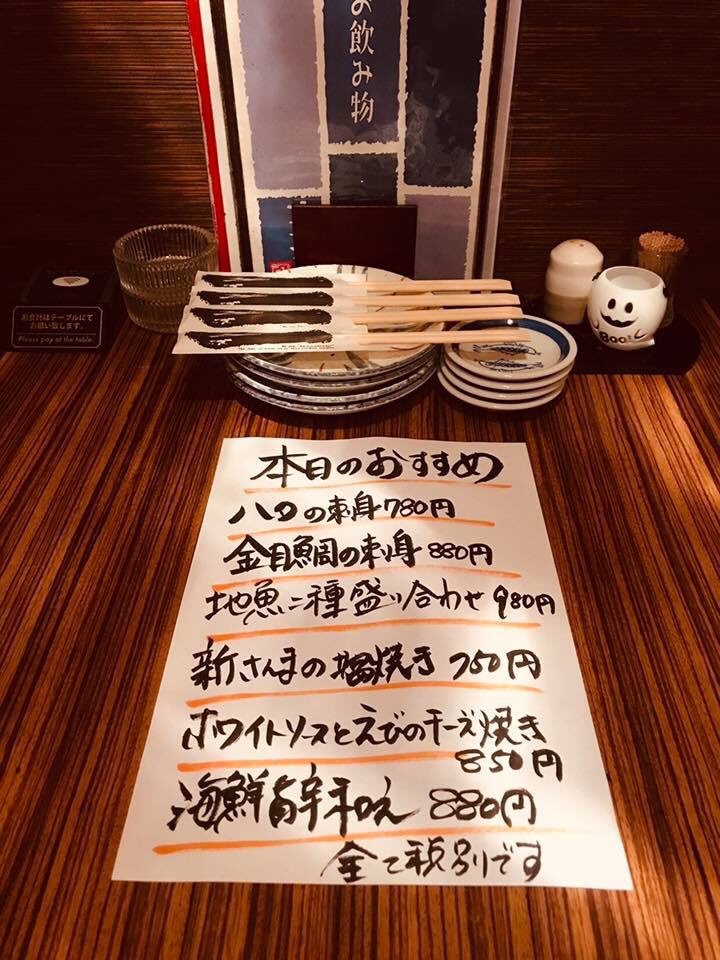 お飲み物
お会計はテーブルにて
お願い致します。
Please pay at the table.
BOO!
本日のおすすめ
ハタの刺身 780円
金目鯛の刺身 880円
地魚二種盛り合わせ 980円
新さんまの塩焼き 750円
ホワイトソースとえびのチーズ焼き
850円
海鮮旨辛和え 880円
全て税別です